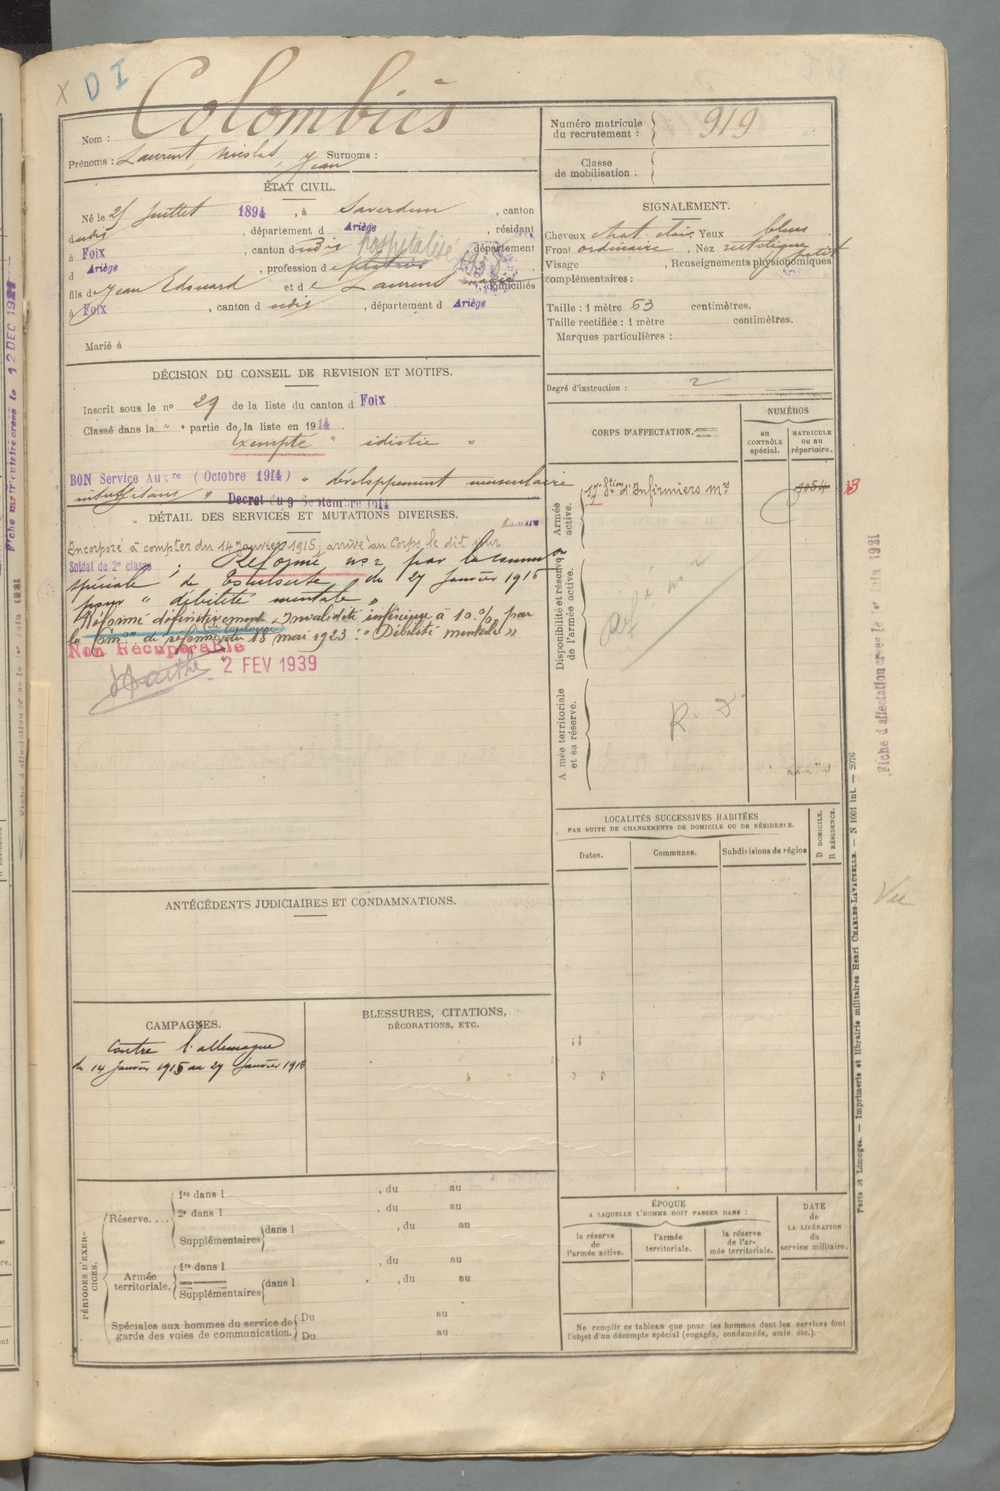 X D I
Colombiès
Nom :
Prénoms : Laurent, Nicolas, Jean Surnoms :
Numéro matricule du recrutement : 919
Classe de mobilisation :
ÉTAT CIVIL.
Né le 25 Juillet 1894, à Saverdun, canton
dudit, département d Ariège, résidant
à Foix, canton dudit, département
d Ariège, profession d
fils de Jean Edouard et de Laurent, domiciliés
à Foix, canton dudit, département d Ariège
Marié à
SIGNALEMENT.
Cheveux chat. clair Yeux bleus
Front ordinaire, Nez rectiligne
petit
Visage , Renseignements physionomiques
complémentaires :
Taille : 1 mètre 63 centimètres.
Taille rectifiée : 1 mètre centimètres.
Marques particulières :
Degré d'instruction : 2
DÉCISION DU CONSEIL DE REVISION ET MOTIFS.
Inscrit sous le nº 29 de la liste du canton d Foix
Classé dans la " " partie de la liste en 1914.
Exempté "
BON Service Auxre (Octobre 1914) " développement musculaire
insuffisant " Decret du 9 Septembre 1914
DÉTAIL DES SERVICES ET MUTATIONS DIVERSES.
Incorporé à compter du 14 Janvier 1915, arrivé au Corps le dit jour
Soldat de 2e classe ; Réformé nº 2 par la comm on
spéciale de Toulouse du 27 Janvier 1915
pour " débilité mentale "
Réformé définitivement Invalidité inférieure à 10 % par
la de réforme du 18 mai 1923 : " Débilité mentale "
Non Récupérable
2 FEV 1939
CORPS D'AFFECTATION.
NUMÉROS
au CONTRÔLE spécial.
MATRICULE ou au répertoire.
Armée active.
17e Son d'Infirmiers Mres
Disponibilité et réserve de l'armée active.
Réf. nº 2
Armée territoriale et sa réserve.
R. D
LOCALITÉS SUCCESSIVES HABITÉES
PAR SUITE DE CHANGEMENTS DE DOMICILE OU DE RÉSIDENCE.
Dates.
Communes.
Subdivisions de région
D DOMICILE.
R RÉSIDENCE.
ANTÉCÉDENTS JUDICIAIRES ET CONDAMNATIONS.
CAMPAGNES.
Contre l'allemagne
du 14 Janvier 1915 au 27 Janvier 1915
BLESSURES, CITATIONS,
DÉCORATIONS, ETC.
PÉRIODES D'EXERCICES.
Réserve....
1re dans l , du au
2e dans l , du au
Supplémentaires dans l , du au
Armée territoriale.
1re dans l , du au
Supplémentaires dans l , du au
Spéciales aux hommes du service de garde des voies de communication.
Du au
Du au
ÉPOQUE
A LAQUELLE L'HOMME DOIT PASSER DANS :
la réserve de l'armée active.
l'armée territoriale.
la réserve de l'armée territoriale.
DATE de LA LIBÉRATION du service militaire.
Ne remplir ce tableau que pour les hommes dont les services font
l'objet d'un décompte spécial (engagés, condamnés, omis etc.).
Paris et Limoges. — Imprimerie et librairie militaires Henri CHARLES-LAVAUZELLE. — N 1001 int. — 2076
Fiche d'affectation créée le 1er Juin 1921
Vu
Fiche matriculaire créée le 12 DEC 1921